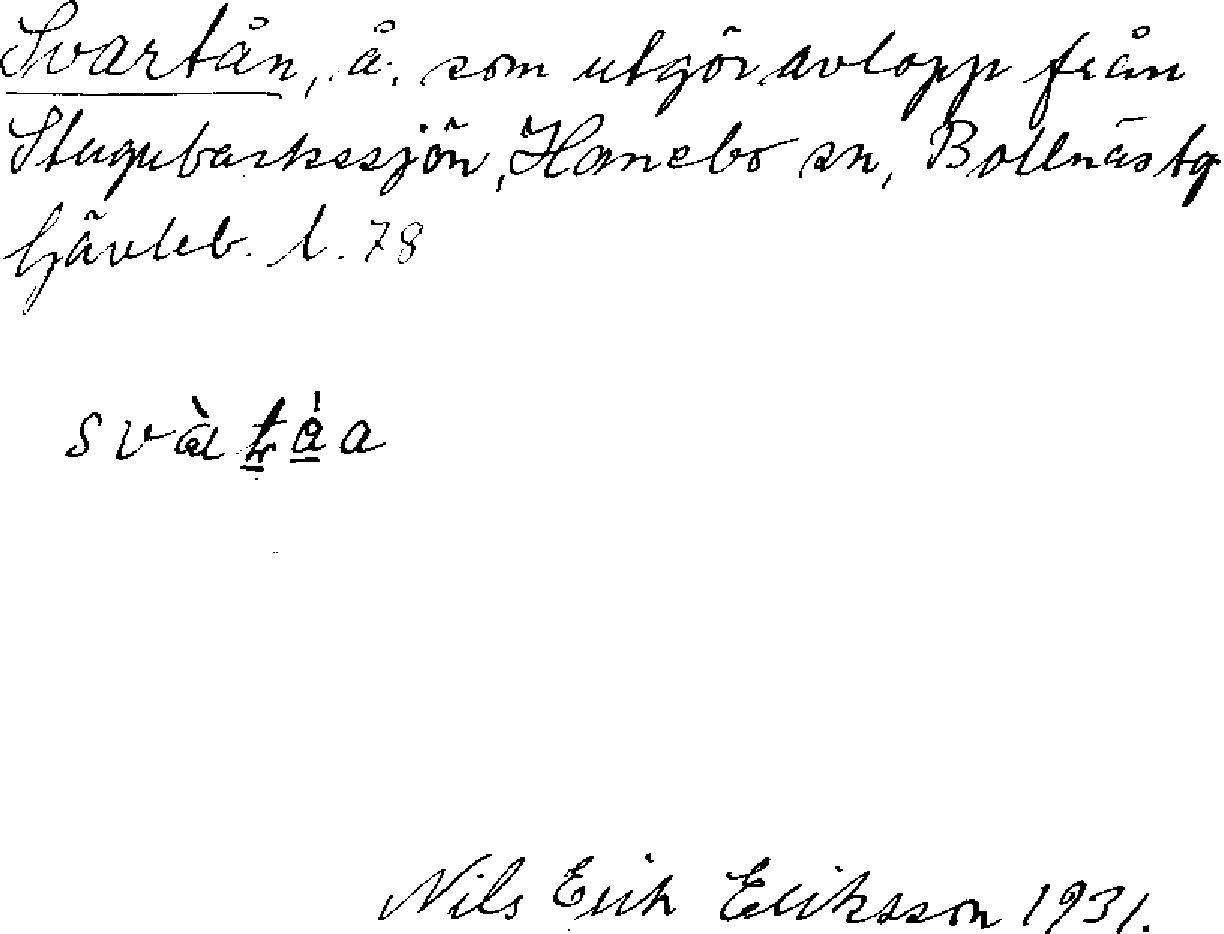 Svartån, å, som utgör avlopp från
Stugubackssjön, Hanebo sn, Bollnästg
Gävleb. l. 78
Nils Erik Eriksson 1931.